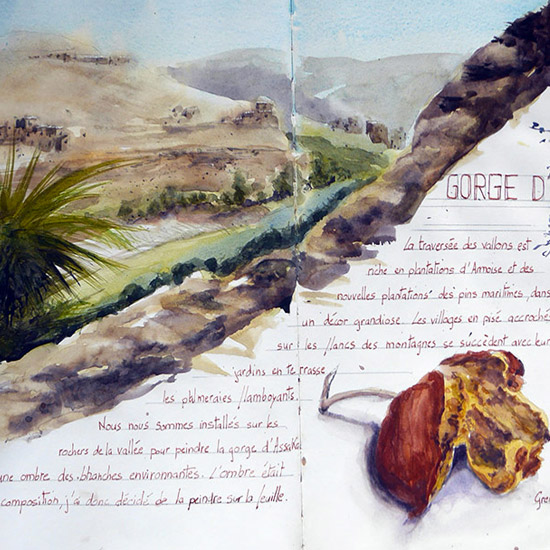 GORGE D
La traversée des vallons est
riche en plantations d'Armoise et des
nouvelles plantations des pins maritimes, dans
un décor grandiose. Les villages en pisé accroché
sur les flancs des montagnes se succèdent avec leur
jardins en terrasse
les palmeraies flamboyants.
Nous nous sommes installés sur les
rochers de la vallée pour peindre la gorge d'Assaka
une ombre des bhanches environnantes. L'ombre était
composition, j'ai donc décidé de la peindre sur la feuille.
Gren